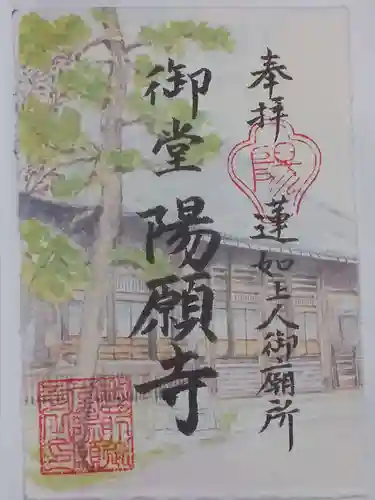 奉拝
陽
蓮如上人御廟所
御堂
陽願寺